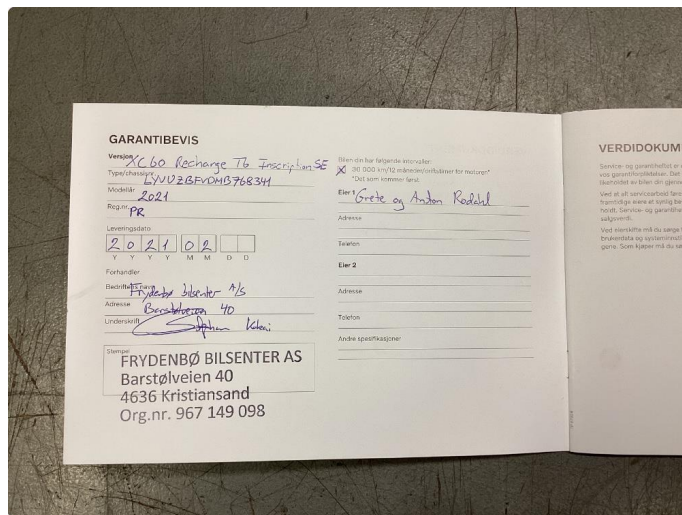 GARANTIBEVIS
Versjon XC60 Recharge T6 Inscription SE
Type/chassisnr.
Modellår 2021
Reg.nr. PR
Leveringsdato
2021 02
Y Y Y Y M M D D
Forhandler
Bedriftens navn Frydenbø bilsenter A/S
Adresse Barstølveien 40
Underskrift
Stempel
FRYDENBØ BILSENTER AS
Barstølveien 40
4636 Kristiansand
Org.nr. 967 149 098
Bilen din har følgende intervaller:
X 30 000 km/12 måneder/driftstimer for motoren*
*Det som kommer først.
Eier 1 Grete og Anton Rodahl
Adresse
Telefon
Eier 2
Adresse
Telefon
Andre spesifikasjoner
VERDIDOKUM
Service- og garantiheftet er